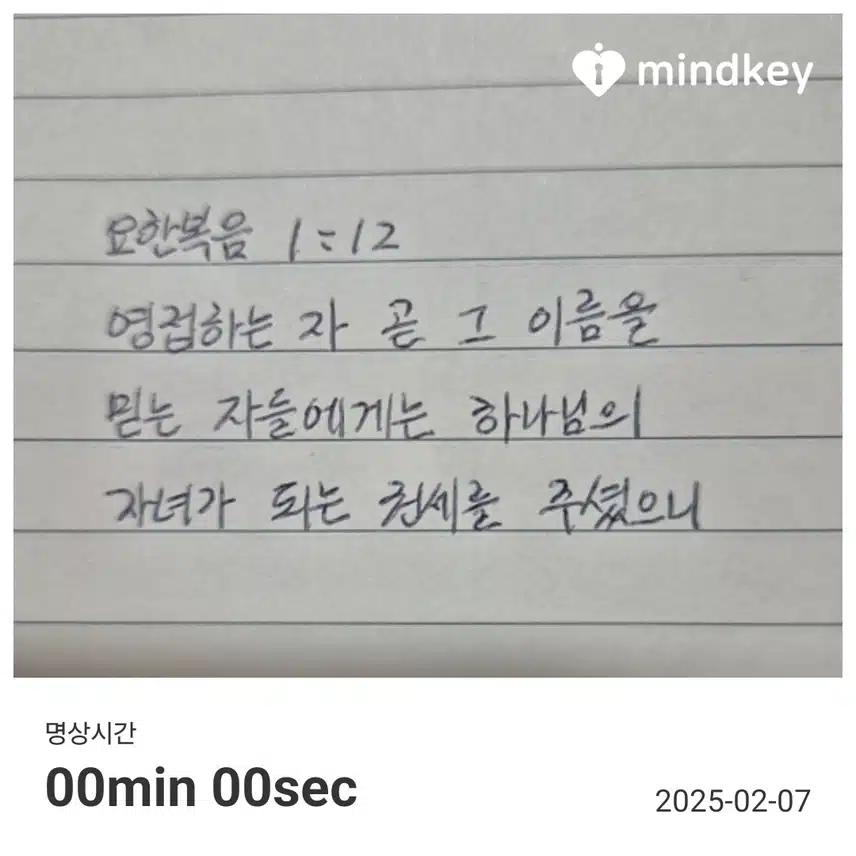 mindkey
요한복음 1:12
영접하는 자 곧 그 이름을
믿는 자들에게는 하나님의
자녀가 되는 권세를 주셨으니
명상시간
00min 00sec
2025-02-07